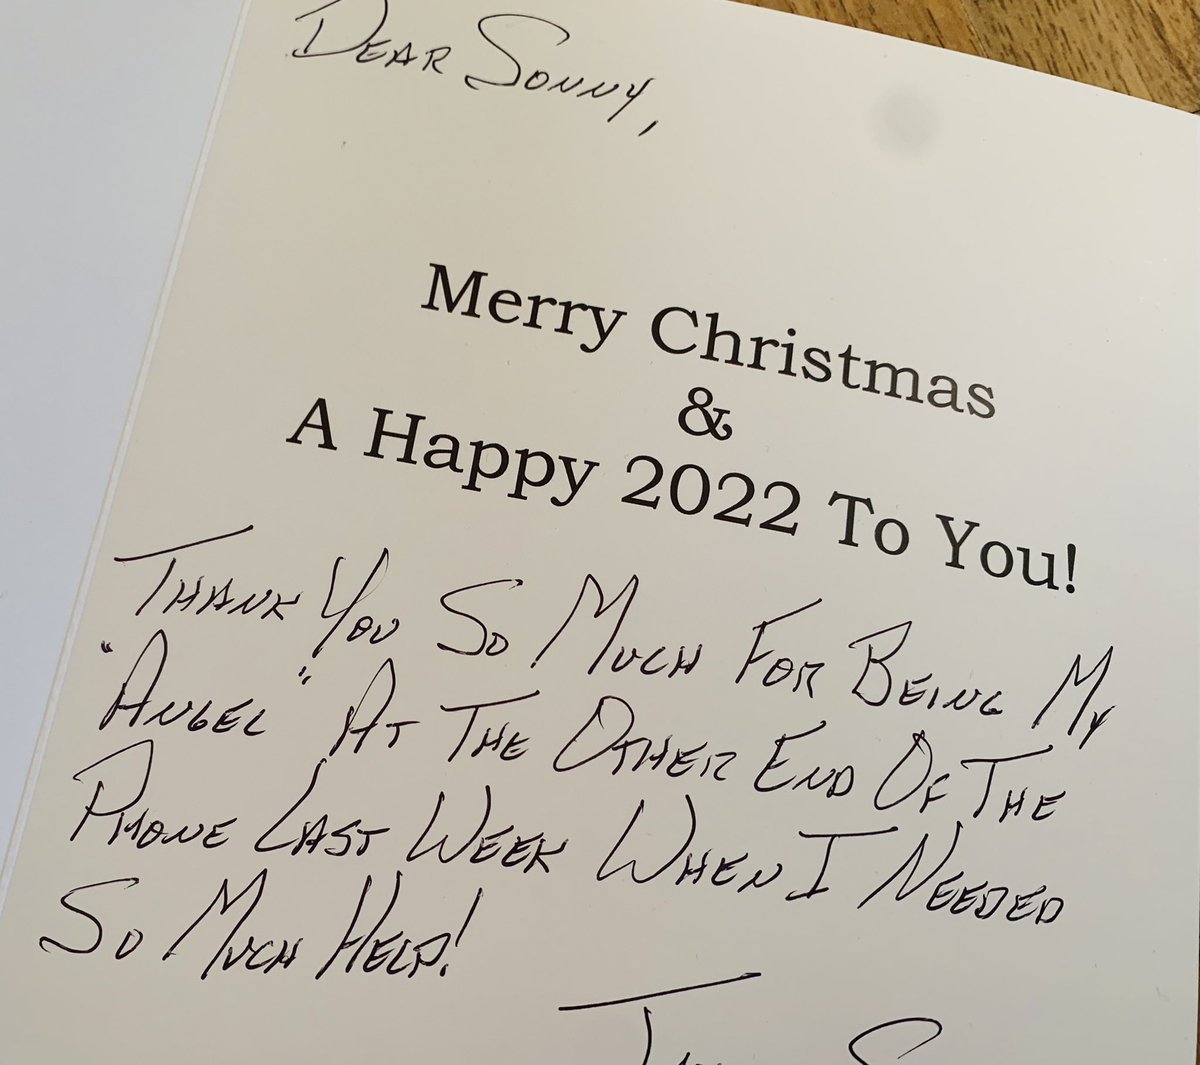 Dear Sonny,
Merry Christmas
&
A Happy 2022 To You!
Thank You So Much For Being My
"Angel" At The Other End Of The
Phone Last Week When I Needed
So Much Help!